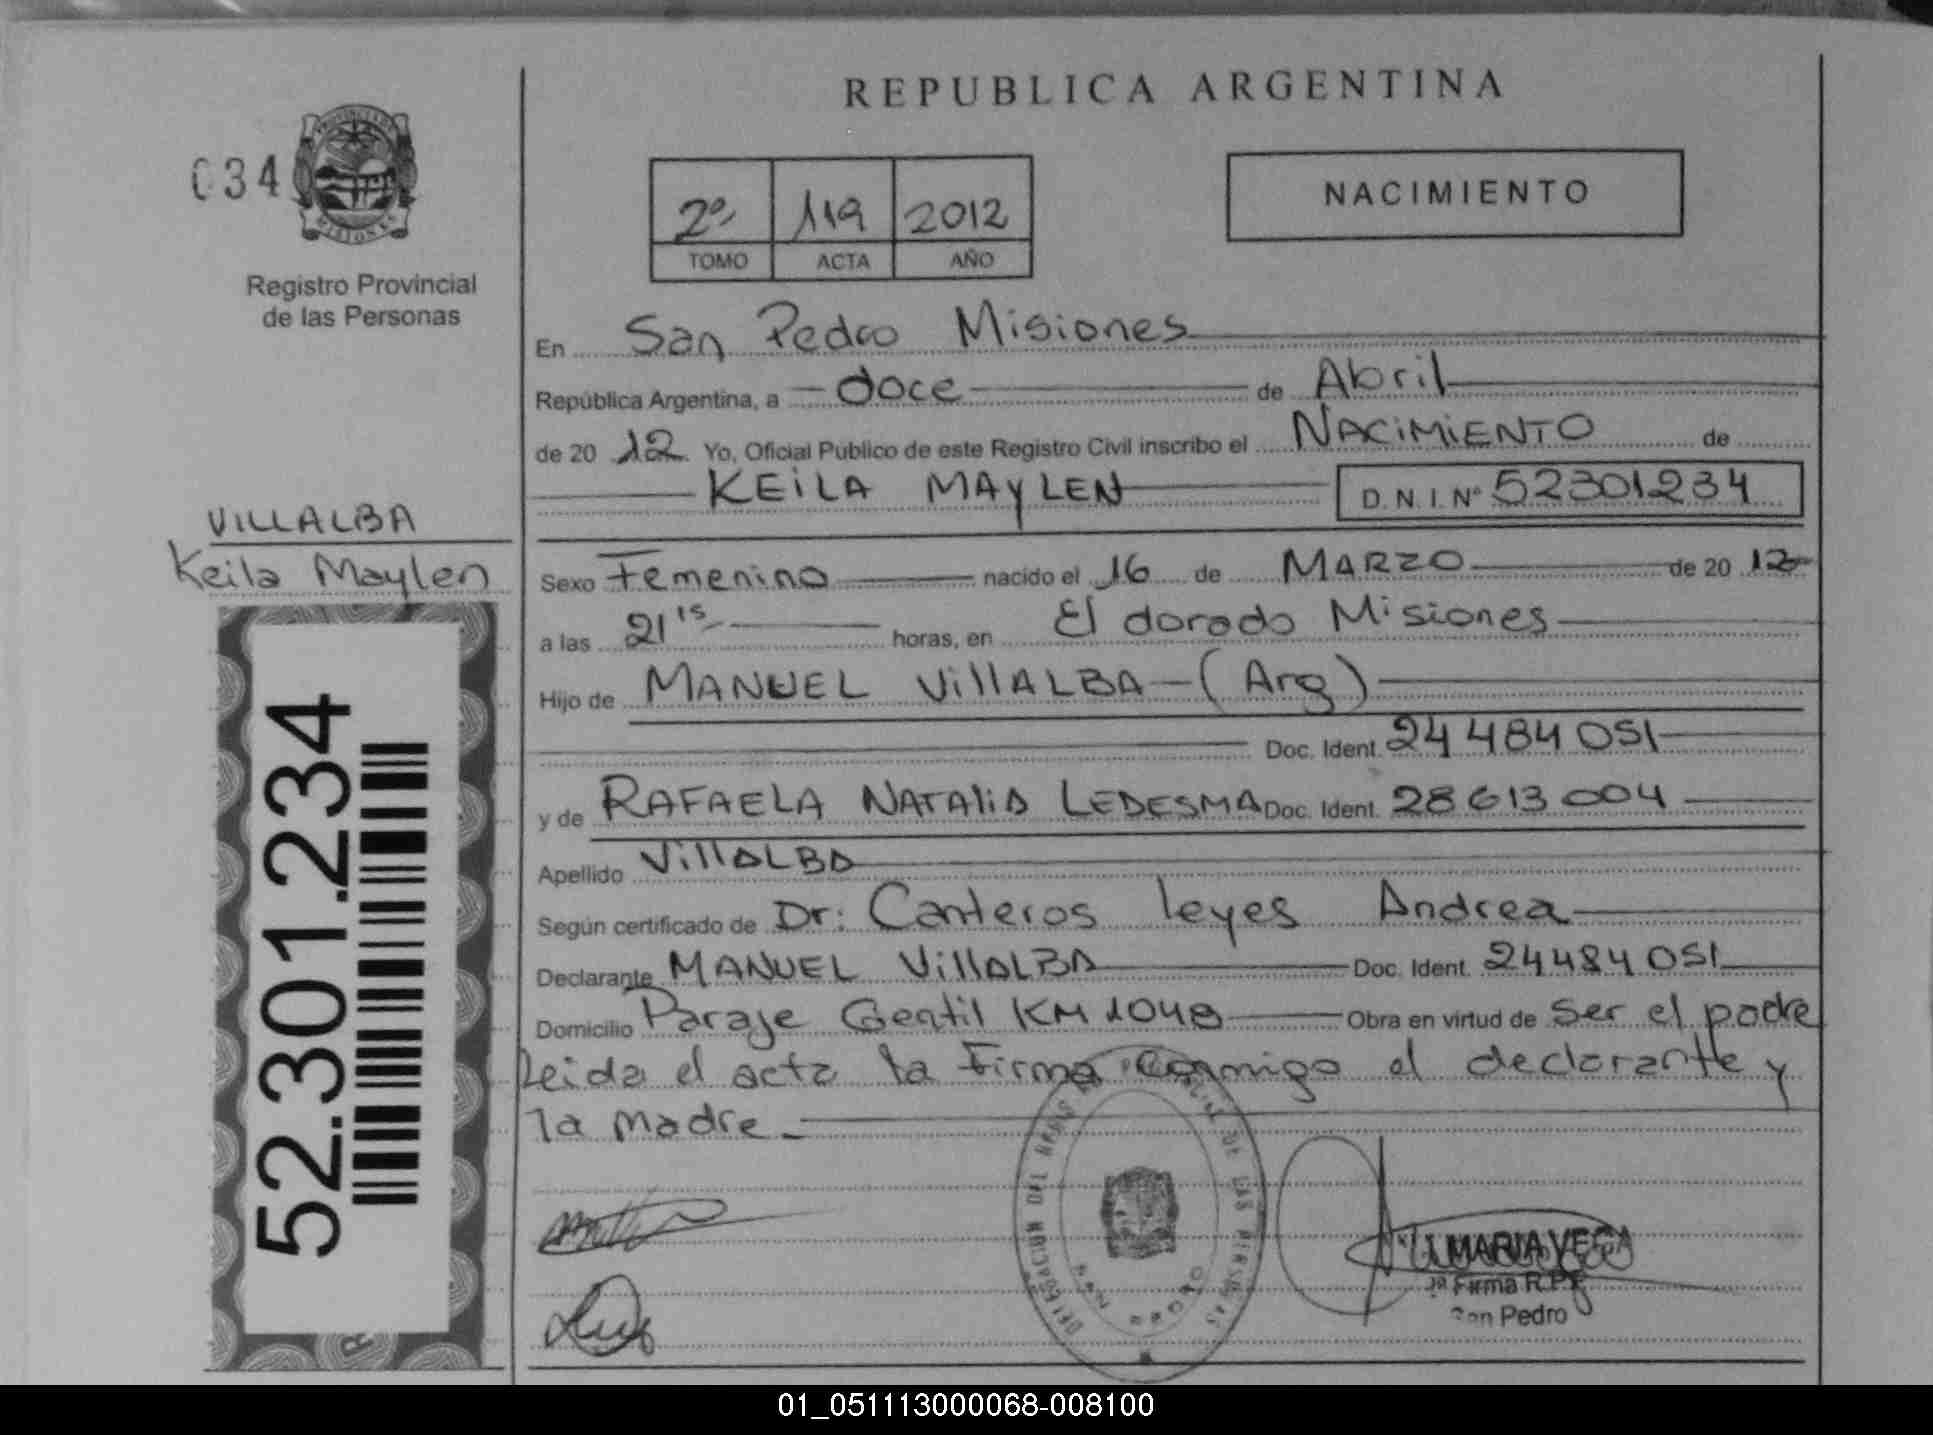 REPUBLICA ARGENTINA
034
Registro Provincial
de las Personas
2º 119 2012
TOMO ACTA AÑO
NACIMIENTO
En San Pedro Misiones
República Argentina, a doce de Abril
de 20 12 Yo, Oficial Publico de este Registro Civil inscribo el NACIMIENTO de
KEILA MAYLEN D.N.I. Nº 52301234
VILLALBA
Keila Maylen
Sexo Femenino nacido el 16 de MARZO de 20 12
a las 21 15 horas, en El dorado Misiones
Hijo de MANUEL VillALBA (Arg)
Doc. Ident. 24 484 051
y de RAFAELA NATALIA LEDESMA Doc. Ident. 28 613 004
Apellido VillALBA
Según certificado de Dr: Canteros leyes Andrea
Declarante MANUEL VillALBA Doc. Ident. 24484 051
Domicilio Paraje Gentil KM 1048 Obra en virtud de Ser el padre
Leida el acta la Firma conmigo el declarante y
la madre
52.301.234
DELEGACION DEL DE LAS PERSONAS
SAN PEDRO
MARIA VEGA
Firma R.P.
San Pedro
01_051113000068-008100